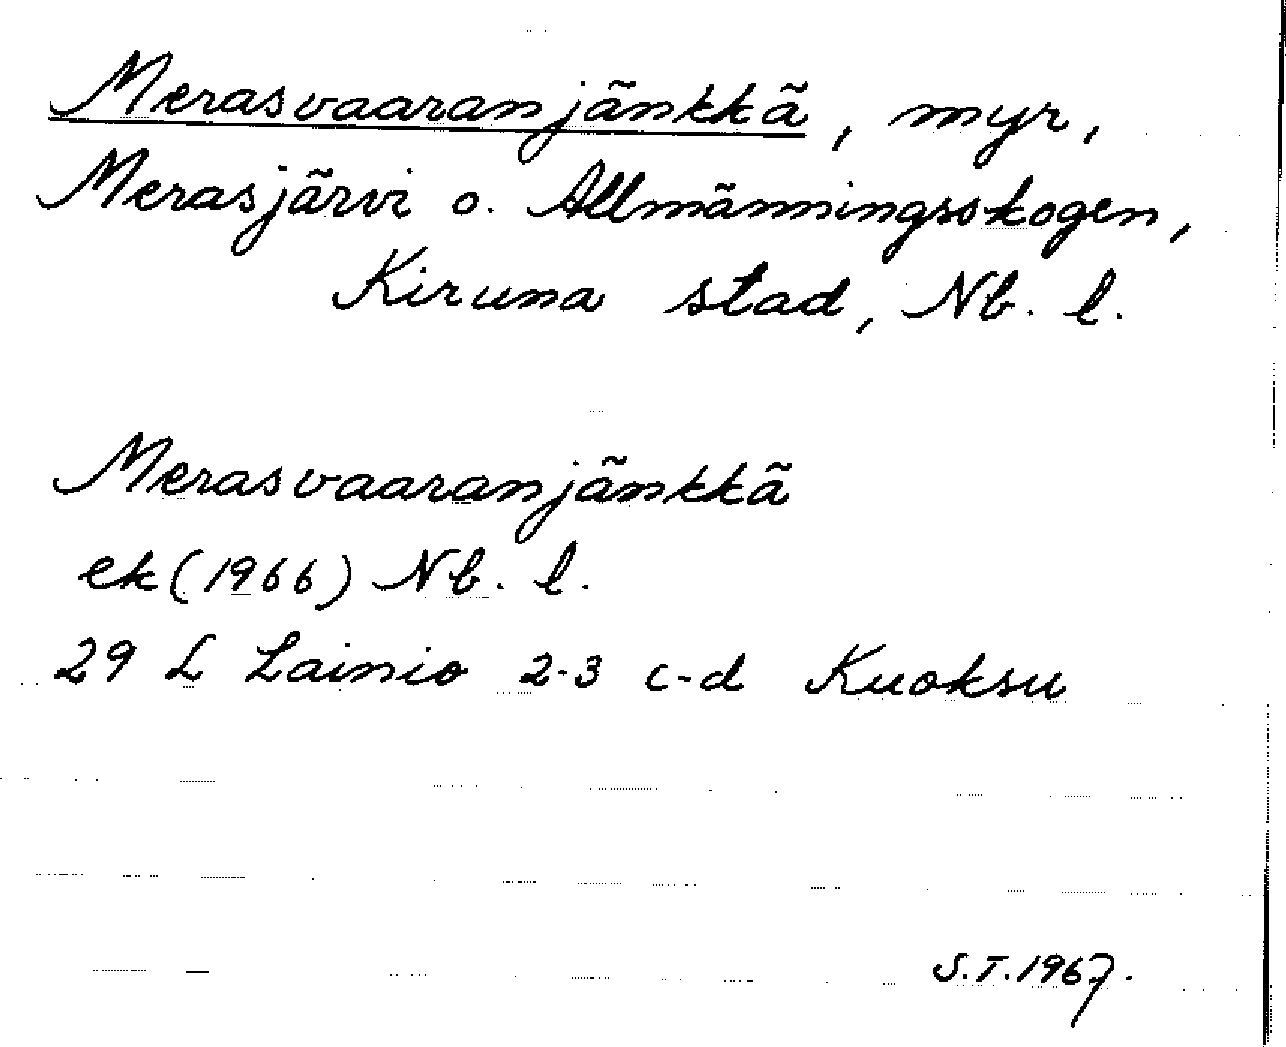 Merasvaaranjänkkä, myr,
Merasjärvi o. Allmänningsskogen,
Kiruna stad, Nb. l.
Merasvaaranjänkkä
ek (1966) Nb. l.
29 L Lainio 2-3 c-d Kuoksu
S.T. 1967.